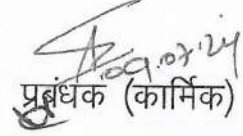 09.07.24
प्रबंधक (कार्मिक)